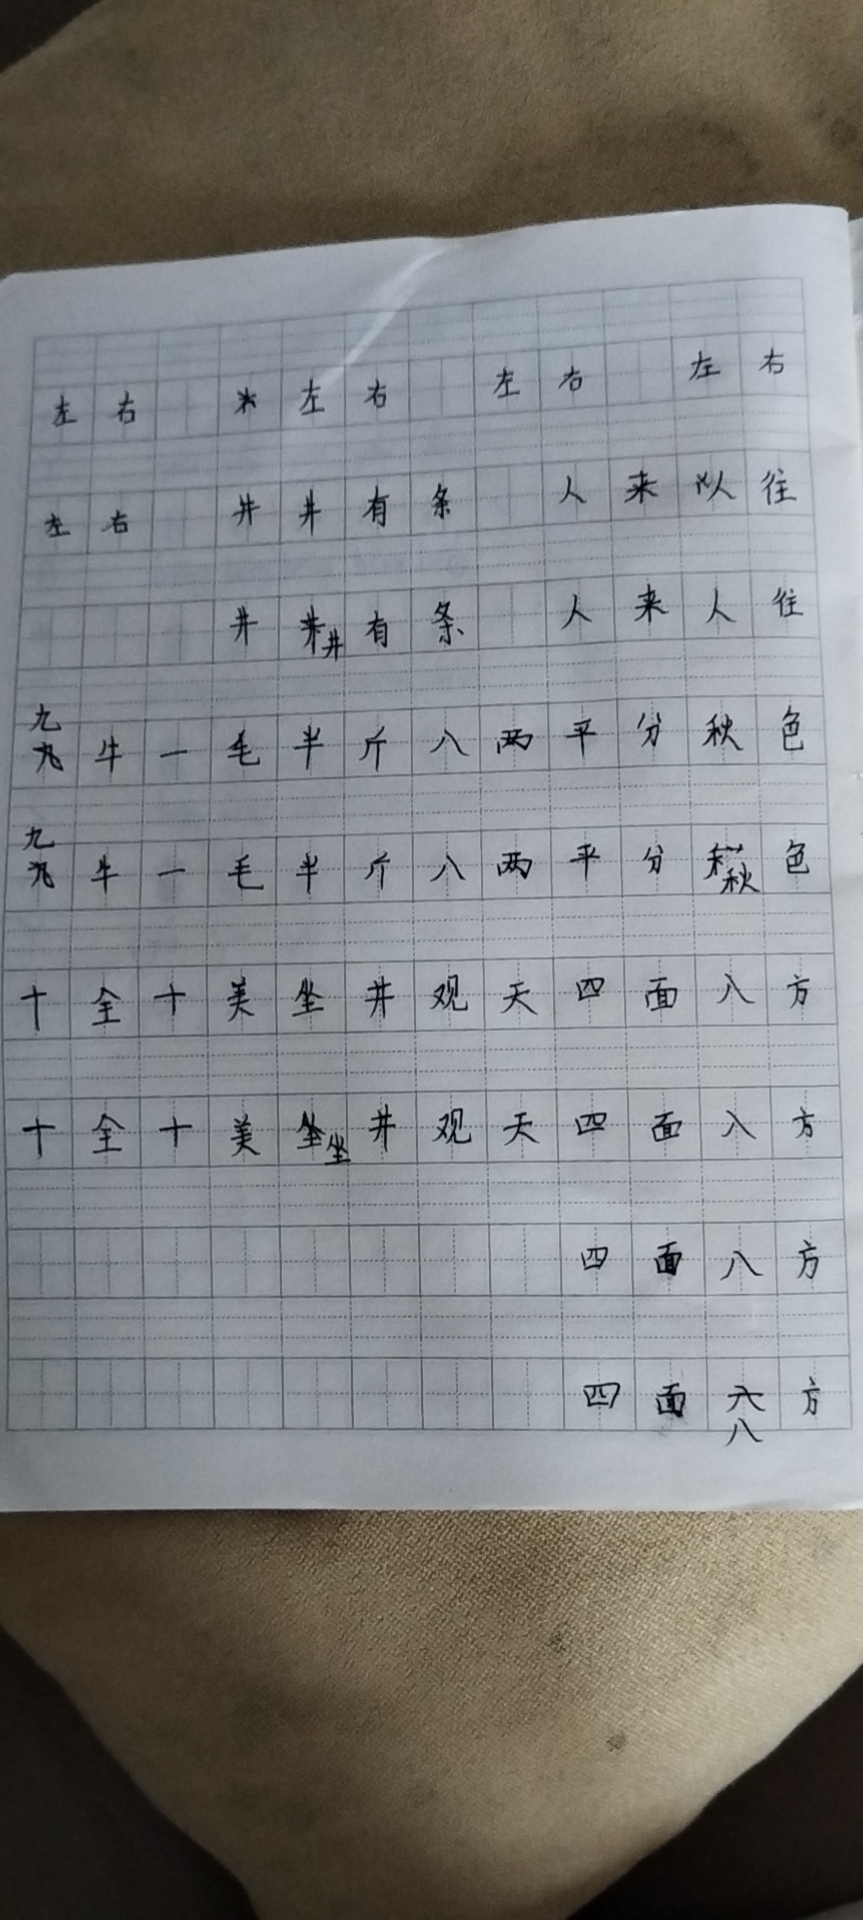 左右 左右 左右 左右
左右 井井有条 人来以往
井井有条 人来人往
九牛一毛半斤八两平分秋色
九牛一毛半斤八两平分秋色
十全十美坐井观天四面八方
十全十美坐井观天四面八方
四面八方
四面八方